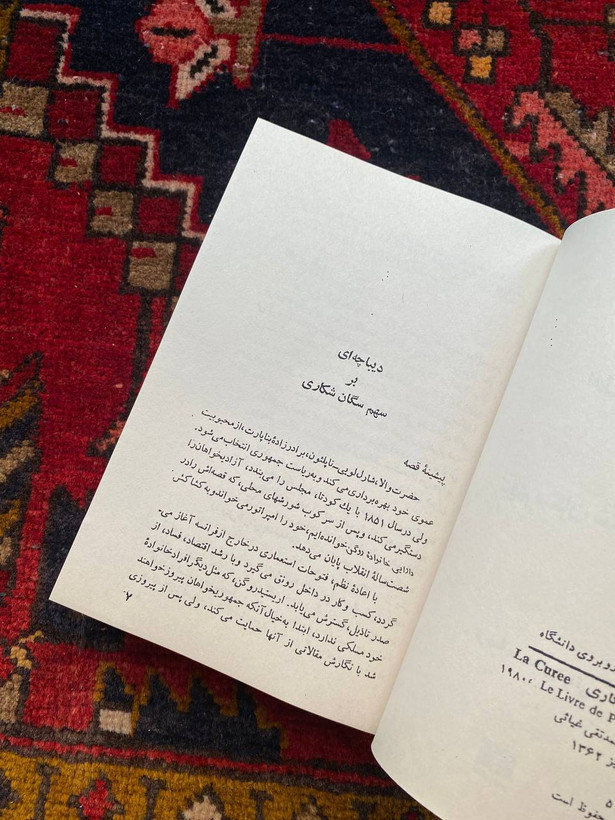 دیباچه‌ای
بر
سهم سگان شکاری
پیشینهٔ قصه
حضرت والا، شارل لویی-ناپلئون، برادرزادهٔ بناپارت، از محبوبیت
عموی خود بهره‌برداری می‌کند و به ریاست جمهوری انتخاب می‌شود.
ولی در سال ۱۸۵۱ با یك كودتا، مجلس را می‌بندد، آزادیخواهان را
دستگیر می‌کند، و پس از سرکوب شورشهای محلی، که قصه‌اش را در
دارایی خانوادهٔ روگن خوانده‌ایم، خود را امپراتور می‌خواند و به کشاکش
شصت‌سالهٔ انقلاب پایان می‌دهد.
با اعادهٔ نظم، فتوحات استعماری در خارج از فرانسه آغاز می‌-
گردد، کسب و کار در داخل رونق می‌گیرد و با رشد اقتصاد، فساد، از
صدر تا ذیل، گسترش می‌یابد. اریستید روگن، که مثل دیگر افراد خانوادهٔ
خود مسلکی ندارد، ابتدا به‌خیال آنکه جمهوریخواهان پیروز خواهند
شد با نگارش مقالاتی از آنها حمایت می‌کند، ولی پس از پیروزی
۷
روبروی دانشگاه
La Curee
۱۹۸۰، Le Livre de
غیاثی
۱۳۶۲
۵
محفوظ است